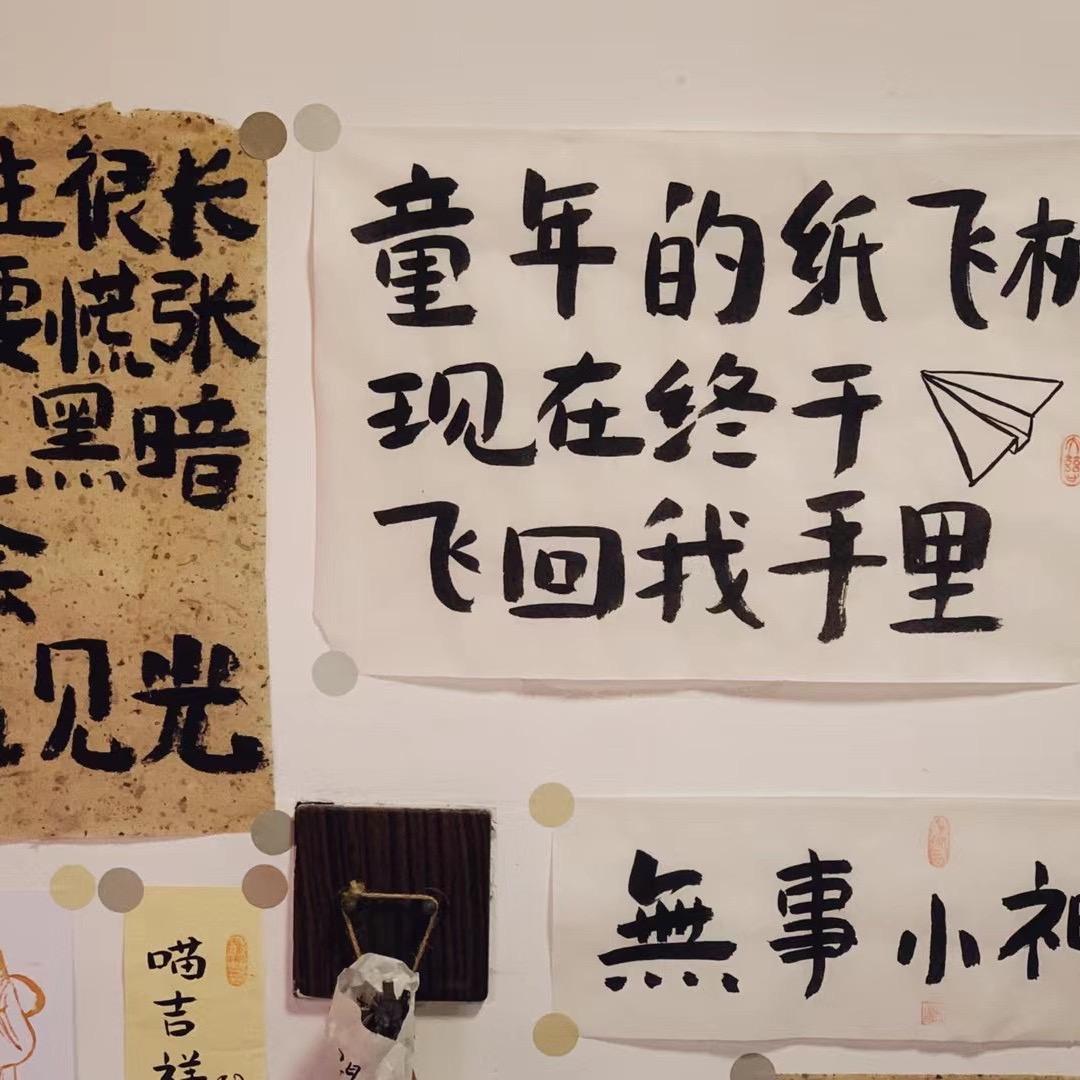 很长
要慌张
黑暗
会
见光
童年的纸飞机
现在终于
飞回我手里
無事小神
喵吉祥